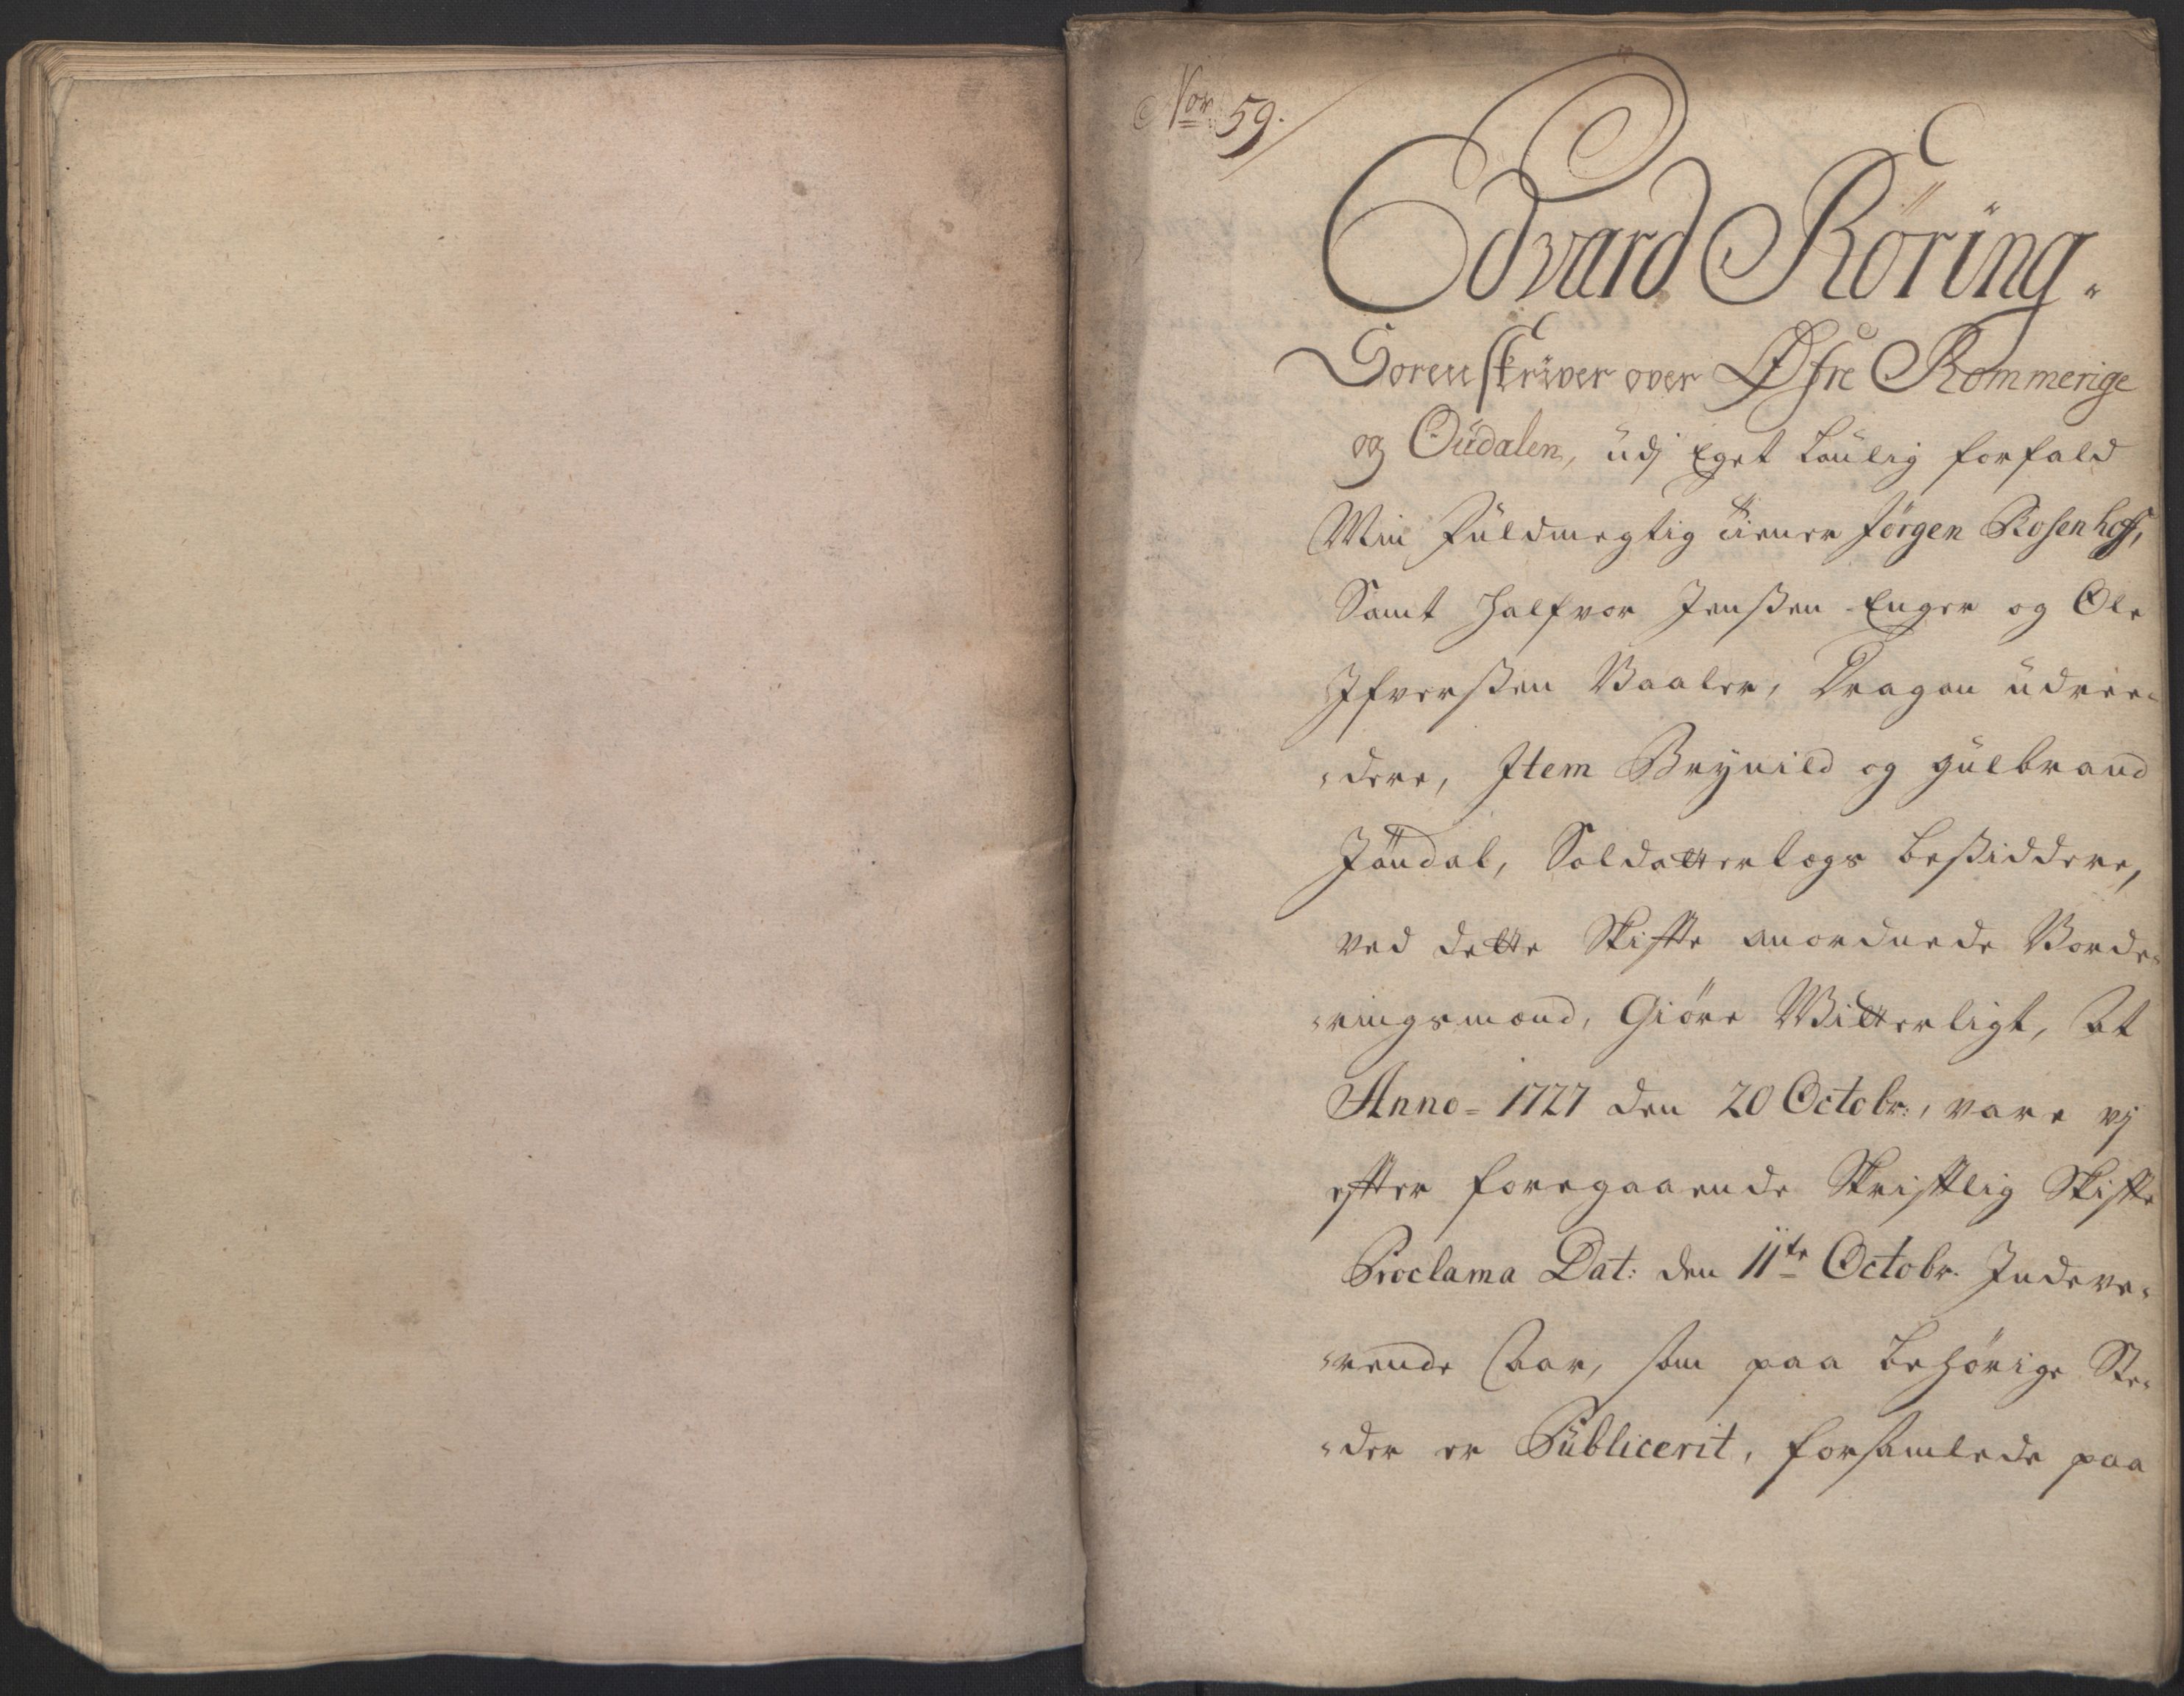 Nor 59.
Edvard Röring.
Sorenskriver over Øfre Rommerige
og Oudalen, udj Eget Laulig forfald
Min Fuldmegtig tiener Jörgen Rosenhoff,
Samt Halfvor Jenßen Enger og Ole
Ifverßen Vaaler, Dragon udree-
dere, Item Brynild og gulbrand
Jöndal, Soldatterlegs beßiddere,
ved dette Skiffte anordnede Vorde-
ringsmænd, Giöre Witterligt, At
Anno 1727 den 20 Octobr:, vare vj
effter foregaaende Skrifftlig Skiffte
Proclama Dat: den 11te Octobr. Indeve-
rende Aar, som paa behörige Ste-
der er Publicerit, forsamlede paa